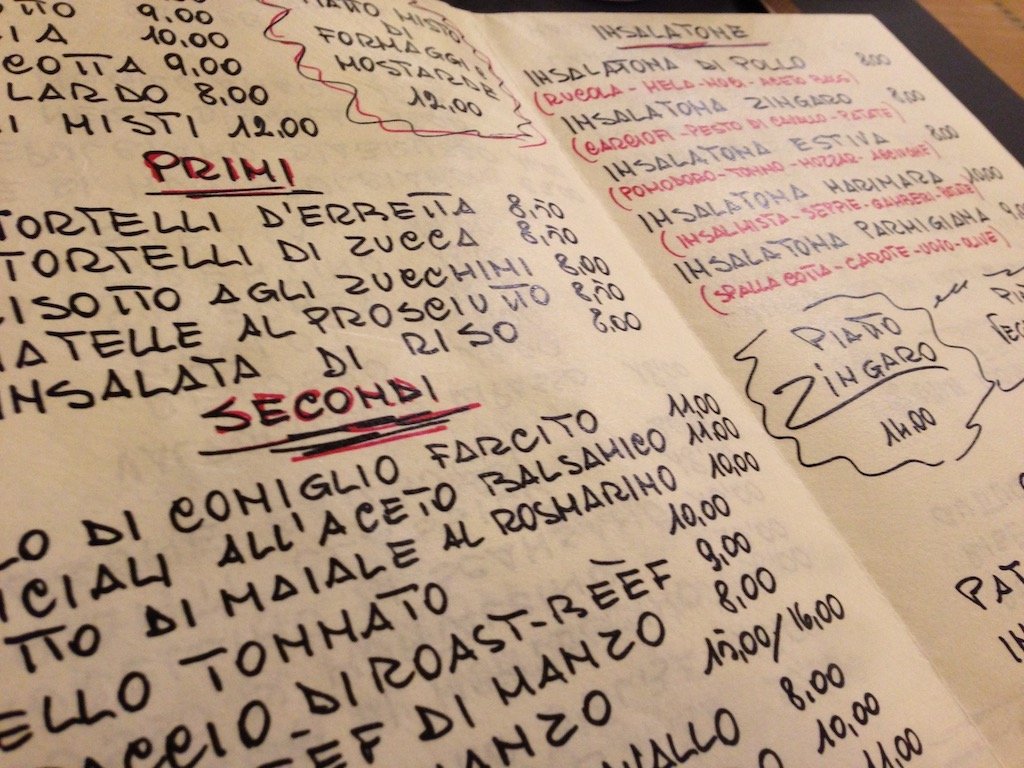 9.00
10.00
COTTA 9,00
LARDO 8,00
MISTI 12.00
PIATTO MISTO
DI
FORMAGGI E
MOSTARDE
12.00
PRIMI
TORTELLI D'ERBETTA 8,50
TORTELLI DI ZUCCA 8,50
RISOTTO AGLI ZUCCHINI 8.00
ATELLE AL PROSCIUTTO 8,50
INSALATA DI RISO 8.00
SECONDI
LO DI CONIGLIO FARCITO 11,00
NCIALI ALL'ACETO BALSAMICO 11.00
TTO DI MAIALE AL ROSMARINO 10,00
ELLO TONNATO 10,00
ACCIO DI ROAST-BEEF 9,00
EF DI MANZO 8,00
ANZO 15,00/16,00
VALLO 8,00
10,00
11,00
INSALATONE
INSALATONA DI POLLO 8.00
(RUCOLA - MELA - NOCI - ACETO BALS)
INSALATONA ZINGARO 8,00
(CARCIOFI - PESTO DI CAVALLO - PATATE)
INSALATONA ESTIVA 8.00
(POMODORO - TONNO - MOZZAR - ACCIUGHE)
INSALATONA MARINARA 10.00
(INSALMISTA - SEPPIE - GAMBERI -
INSALATONA PARMIGIANA 9.00
(SPALLA COTTA - CAROTE - UOVO - OLIVE)
PIATTO
ZINGARO
14.00
PAT
IN